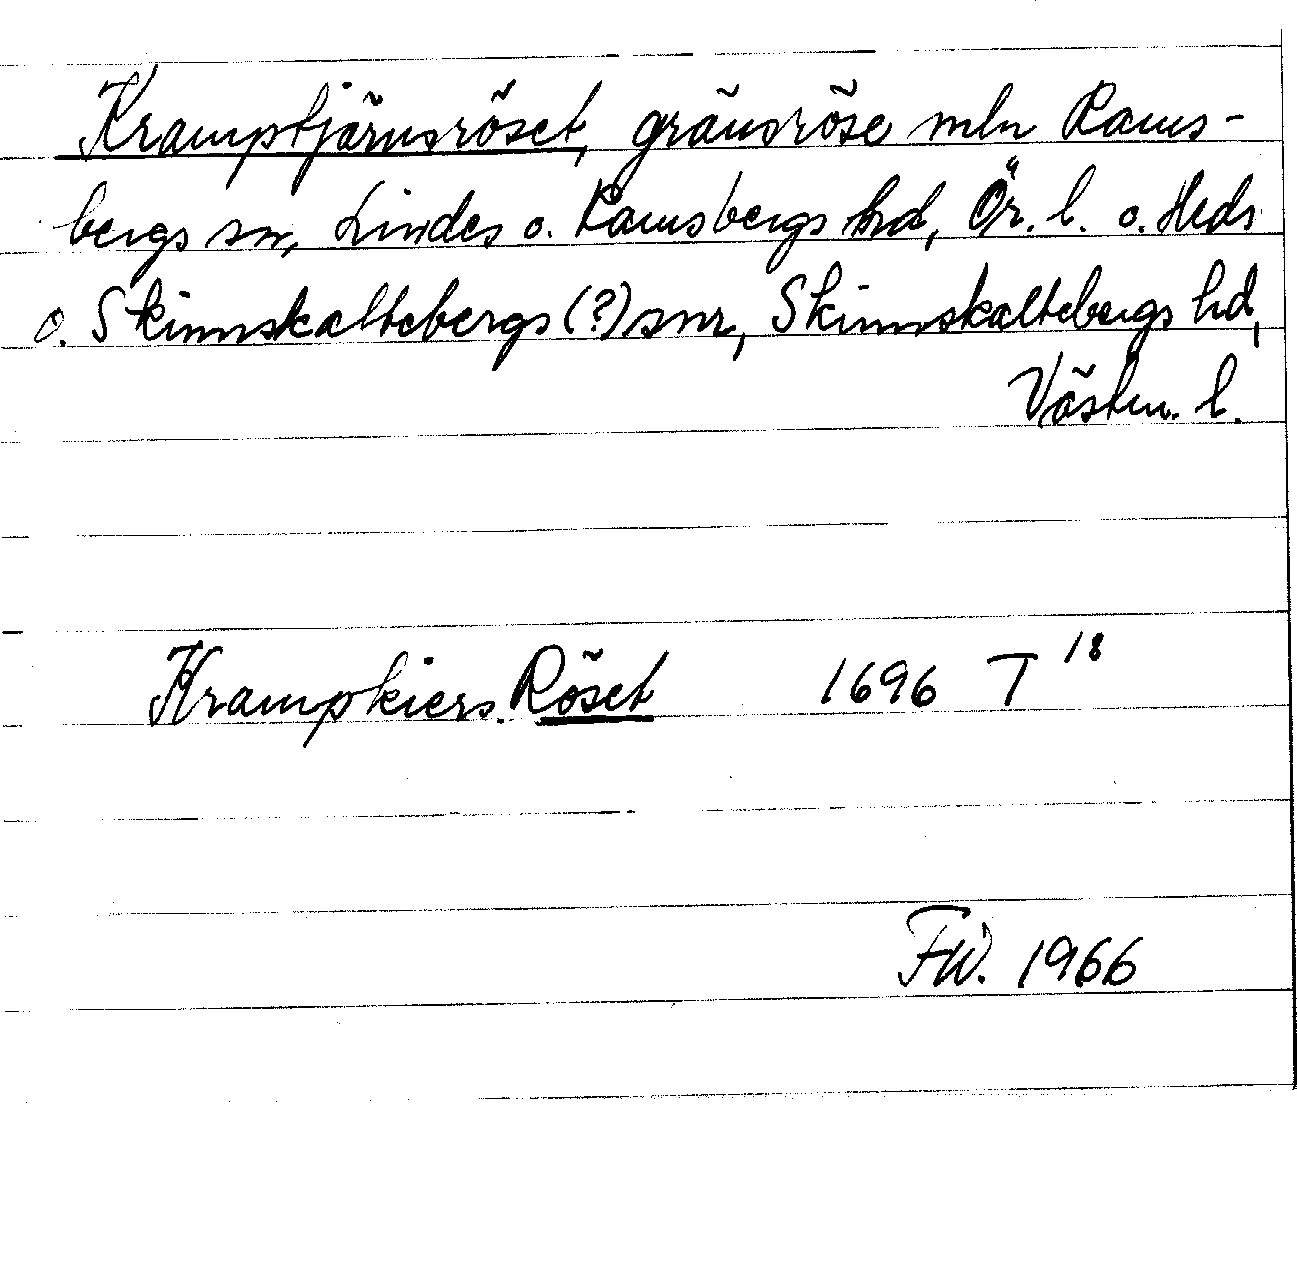 Kramptjärnsröset, gränsröse mln Rams-
bergs sn, Lindes o. Ramsbergs hd, Ör. l. o. Heds
o. Skinnskattebergs (?) snr, Skinnskattebergs hd,
Västm. l.
Krampkiers Röset 1696 T 18
FW. 1966